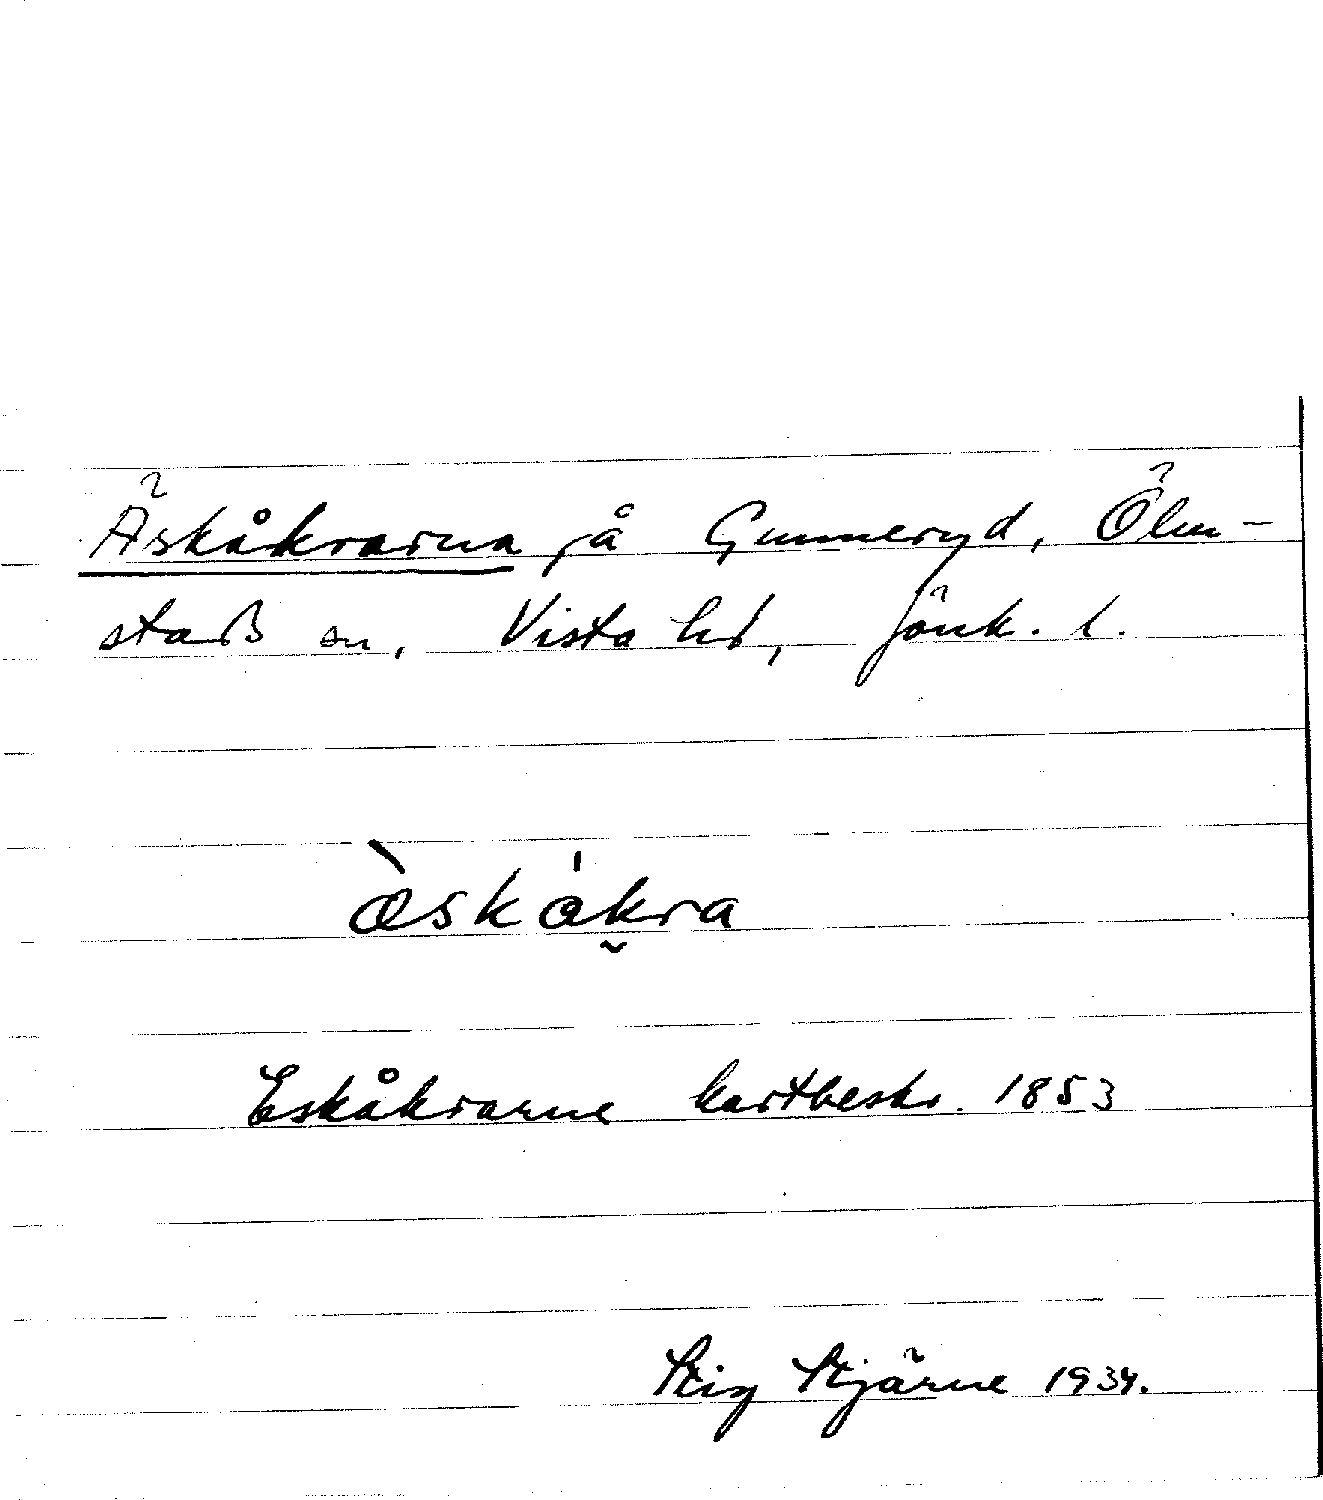 Äskåkrarna på Gunneryd, Ölm-
stads sn, Vista hd, Jönk. l.
æ̀skȧk̬ra
Eskåkrarne kartbeskr. 1853
Stig Stjärne 1934.